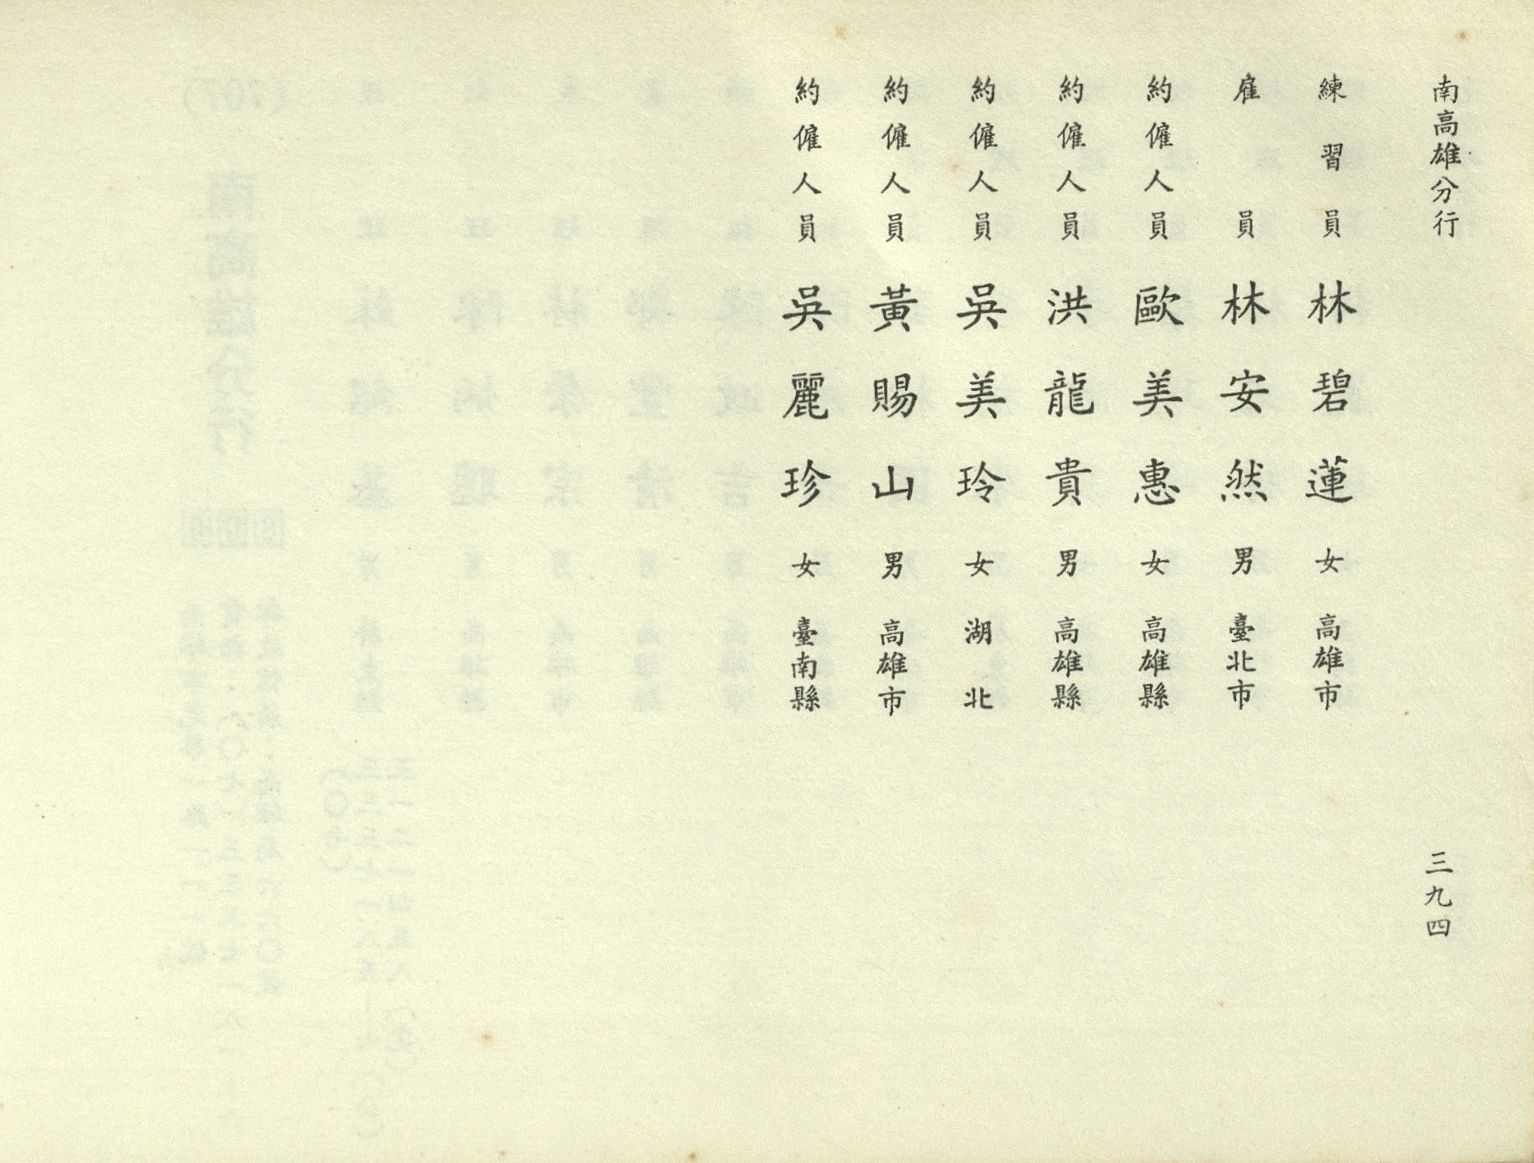 南高雄分行
三九四
練習員 林碧蓮 女 高雄市
雇員 林安然 男 臺北市
約僱人員 歐美惠 女 高雄縣
約僱人員 洪龍貴 男 高雄縣
約僱人員 吳美玲 女 湖北
約僱人員 黃賜山 男 高雄市
約僱人員 吳麗珍 女 臺南縣